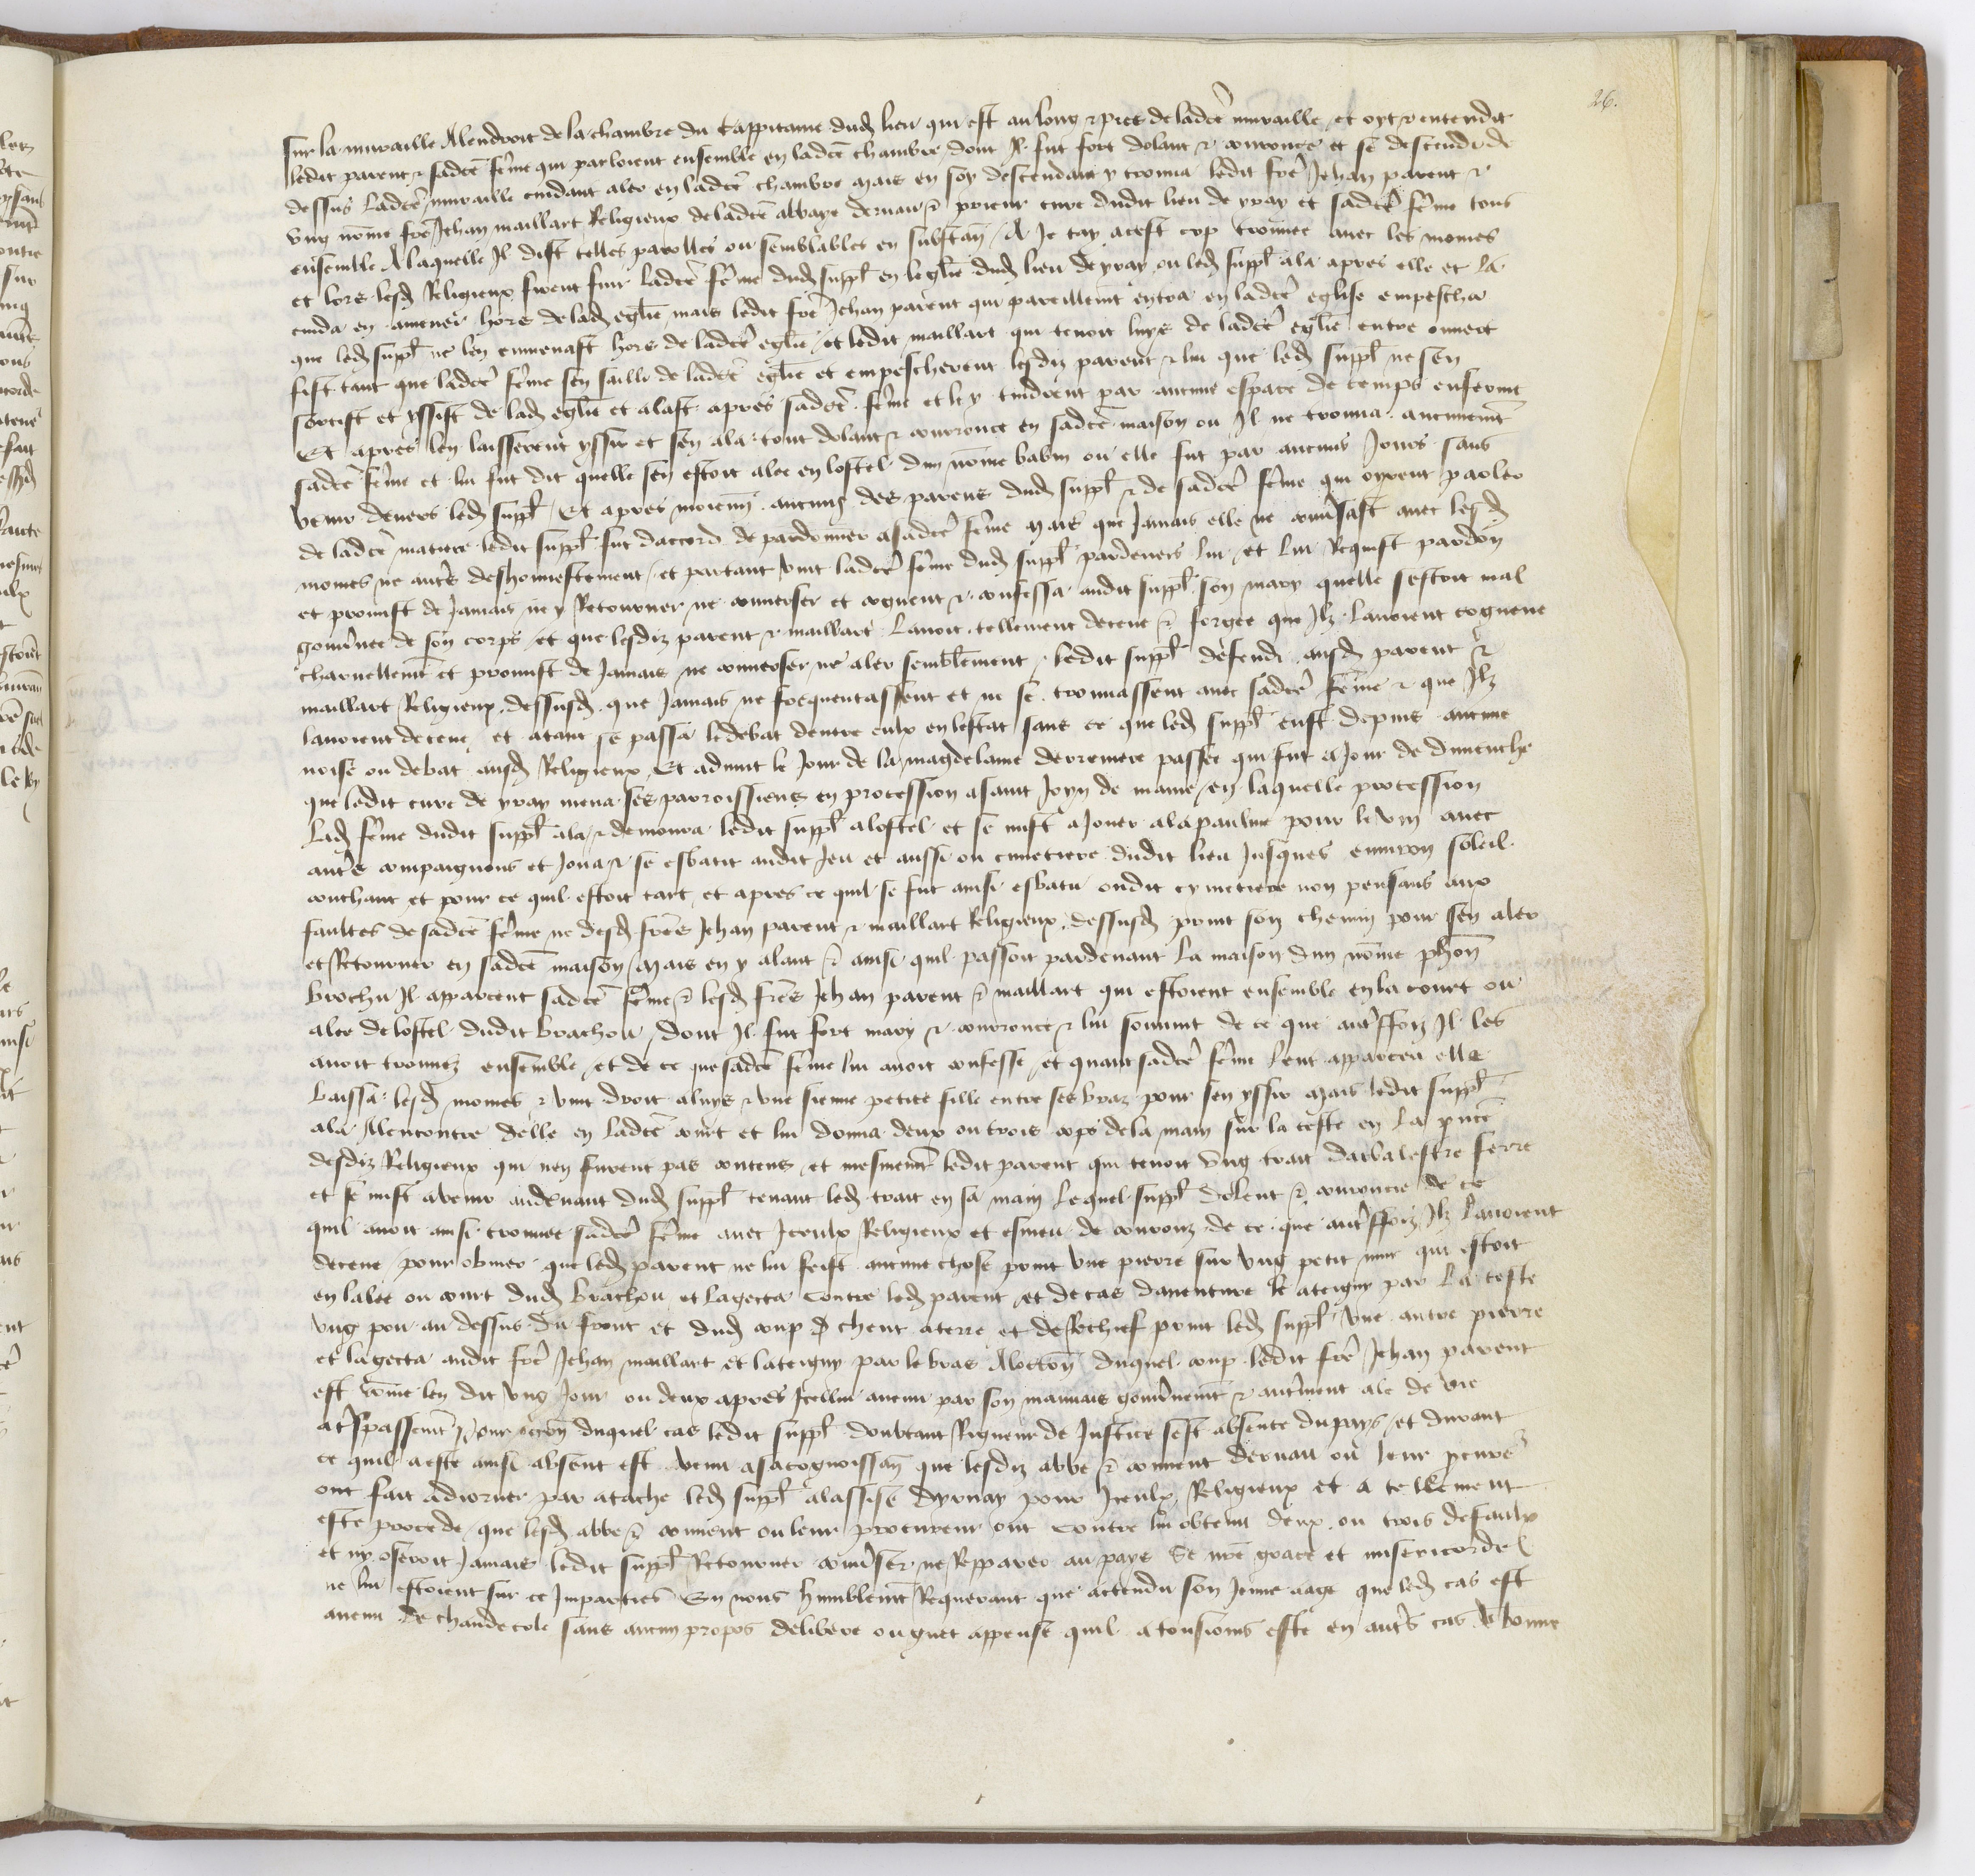 26.
sur la muraille Alendroit de la chambre du Cappitaine dud lieu qui est au long & pres de ladcte muraille et oyt & entendit
ledit parent & sadcte feme qui parloient ensemble en ladcte chambre dont Il fut fort dolant & couroucé et se descendi de
dessus ladcte muraille cuidant aler en ladcte chambre mais en soy descendant y trouva ledit frere Jehan parent &
ung nome frere Jehan maillart Religieux de ladcte abbaye dervau & prieur cure dudit lieu de yvay et sadcte feme tous
ensemble A laquelle Il dist telles parolles ou semblables en substan A Je tay a cest cop trouvee avec les moines
et lors lesd Religieux firent fuir ladcte feme dud suppl en leglise dud lieu de yvay ou led suppl ala apres elle et la
cuida en amener hors de lad eglise mais ledit frere Jehan parent qui pareillemt entra en ladcte eglise empescha
que led suppl ne len emmenast hors de ladcte eglise et ledit maillart qui tenoit luys de ladcte eglise entre ouvert
fist tant que ladcte feme sen sailli de ladcte eglise et empescherent lesdiz parent & lui que led suppl ne sen
sortist et yssist de lad eglise et alast apres sadcte feme et le y tindrent par aucune espace de temps enfermé
Et apres len laisserent yssir et sen ala tout dolant & courouce en sadcte maison ou Il ne trouva aucunemt
sadcte feme et lui fut dit quelle sen estoit alee en lostel dun nome babin ou elle fut par aucuns Jours sans
venir devers led suppl Et apres moienn aucuns des parens dud suppl & de sadcte feme qui oyrent parler
de ladcte matiere ledit suppl fut daccord de pardonner a sadcte feme mais que Jamais elle ne conversast avec lesd
moines ne autres deshonnestement et partant vint ladcte feme dud suppl pardevers lui et lui Requist pardon
et promist de Jamais ne y Retourner ne converser et cognent & confessa audit suppl son mary quelle sestoit mal
gouvnee de son corps et que lesdiz parent & maillart lavoit tellement deceue & forgee que Ilz lavoient cogneue
charnellemt et promist de Jamais ne converser ne aler semblement ledit suppl defendi ausd parent &
maillart Religieux dessusd que Jamais ne frequentassent et ne se trouvassent avec sadcte feme & que Ilz
lavoient deceue et atant se passa le debat dentre eulx en lestat sans ce que led suppl eust depuis aucune
noise ou debat ausd Religieux Et advint le Jour de la magdelaine derreniere passee qui fut a Jour de dimenche
que ledit cure de yvay mena ses parroissiens en procession a saint Joyn de marne en laquelle procession
Lad feme dudit suppl ala & demoura ledit suppl a lostel et se mist a Jouer a la paulme pour le vin avec
autres compaignons et Joua & se esbatit audit Jeu et aussi ou cimetiere dudit lieu Jusques environ soleil
couchant et pour ce quil estoit tart et apres ce quil se fut ainsi esbatu oudit cymetiere non pensans aux
faultes de sadcte feme ne desd freres Jehan parent & maillart Religieux dessusd print son chemin pour sen aler
et Retourner en sadcte maison mais en y alant & ainsi quil passoit pardevant la maison dun nome phon
Brochu Il apparceut sadcte feme & lesd freres Jehan parent & maillart qui estoient ensemble en la court ou
alee de lostel dudit Brachou dont Il fut fort mary & couroucé & lui souvint de ce que autresfoiz Il les
avoit trouvez ensemble et de ce que sadcte feme lui avoit confessé et quant sadcte feme leut apparceu elle
laissa lesd moines & vint droit a luys & une sienne petite fille entre ses braz pour sen yssir mais ledit suppl
ala Alencontre delle en ladcte court et lui donna deux ou trois cops de la main sur la teste en la pnce
desdiz Religieux qui nen furent pas contens et mesmemt ledit parent qui tenoit ung trait darbalestre ferré
et se mist a venir audevant dud suppl tenant led trait en sa main Lequel suppl dolent & couroucie de ce
quil avoit ainsi trouvee sadcte feme avec Iceulx Religieux et esmeu de couroux de ce que autresfoiz Ilz lavoient
deceue pour obvier que led parent ne lui feist aucune chose print une pierre sur ung petit mur qui estoit
en lalee ou court dud Brachou et la gecta contre led parent et de cas daventure le ateigny par la teste
ung pou au dessus du front et dud coup d cheut a terre et de Rechief print led suppl une autre pierre
et la gecta audit frere Jehan maillart et lateigny par le bras A loccon duquel coup ledit frere Jehan parent
est come len dit ung Jour ou deux apres Icellui avenu par son mauvais gouvnemt & autrement alé de vie
a trespassemt pour occon duquel cas ledit suppl doubtant Rigueur de Justice sest absenté du pays et durant
ce quil a esté ainsi absent est venu a sa cognoissan que lesdiz abbe & couvent dervau ou leur procure
ont fait adiorner par atache led suppl a lassise dyvay pour Iceulx Religieux et a tellement
esté procede que lesd abbe & couvent ou leur procureur ont contre lui obtenu deux ou trois defaulx
et ny oseroit Jamais ledit suppl Retourner conver ne Repparer au pays Se nre grace et misericorde
ne lui estoient sur ce Imparties En nous humblemt Requerant que actendu son Jeune aage que led cas est
avenu de chaude cole sans aucun propos deliberé ou guet appensé quil a tousiours esté en autres cas de bonne